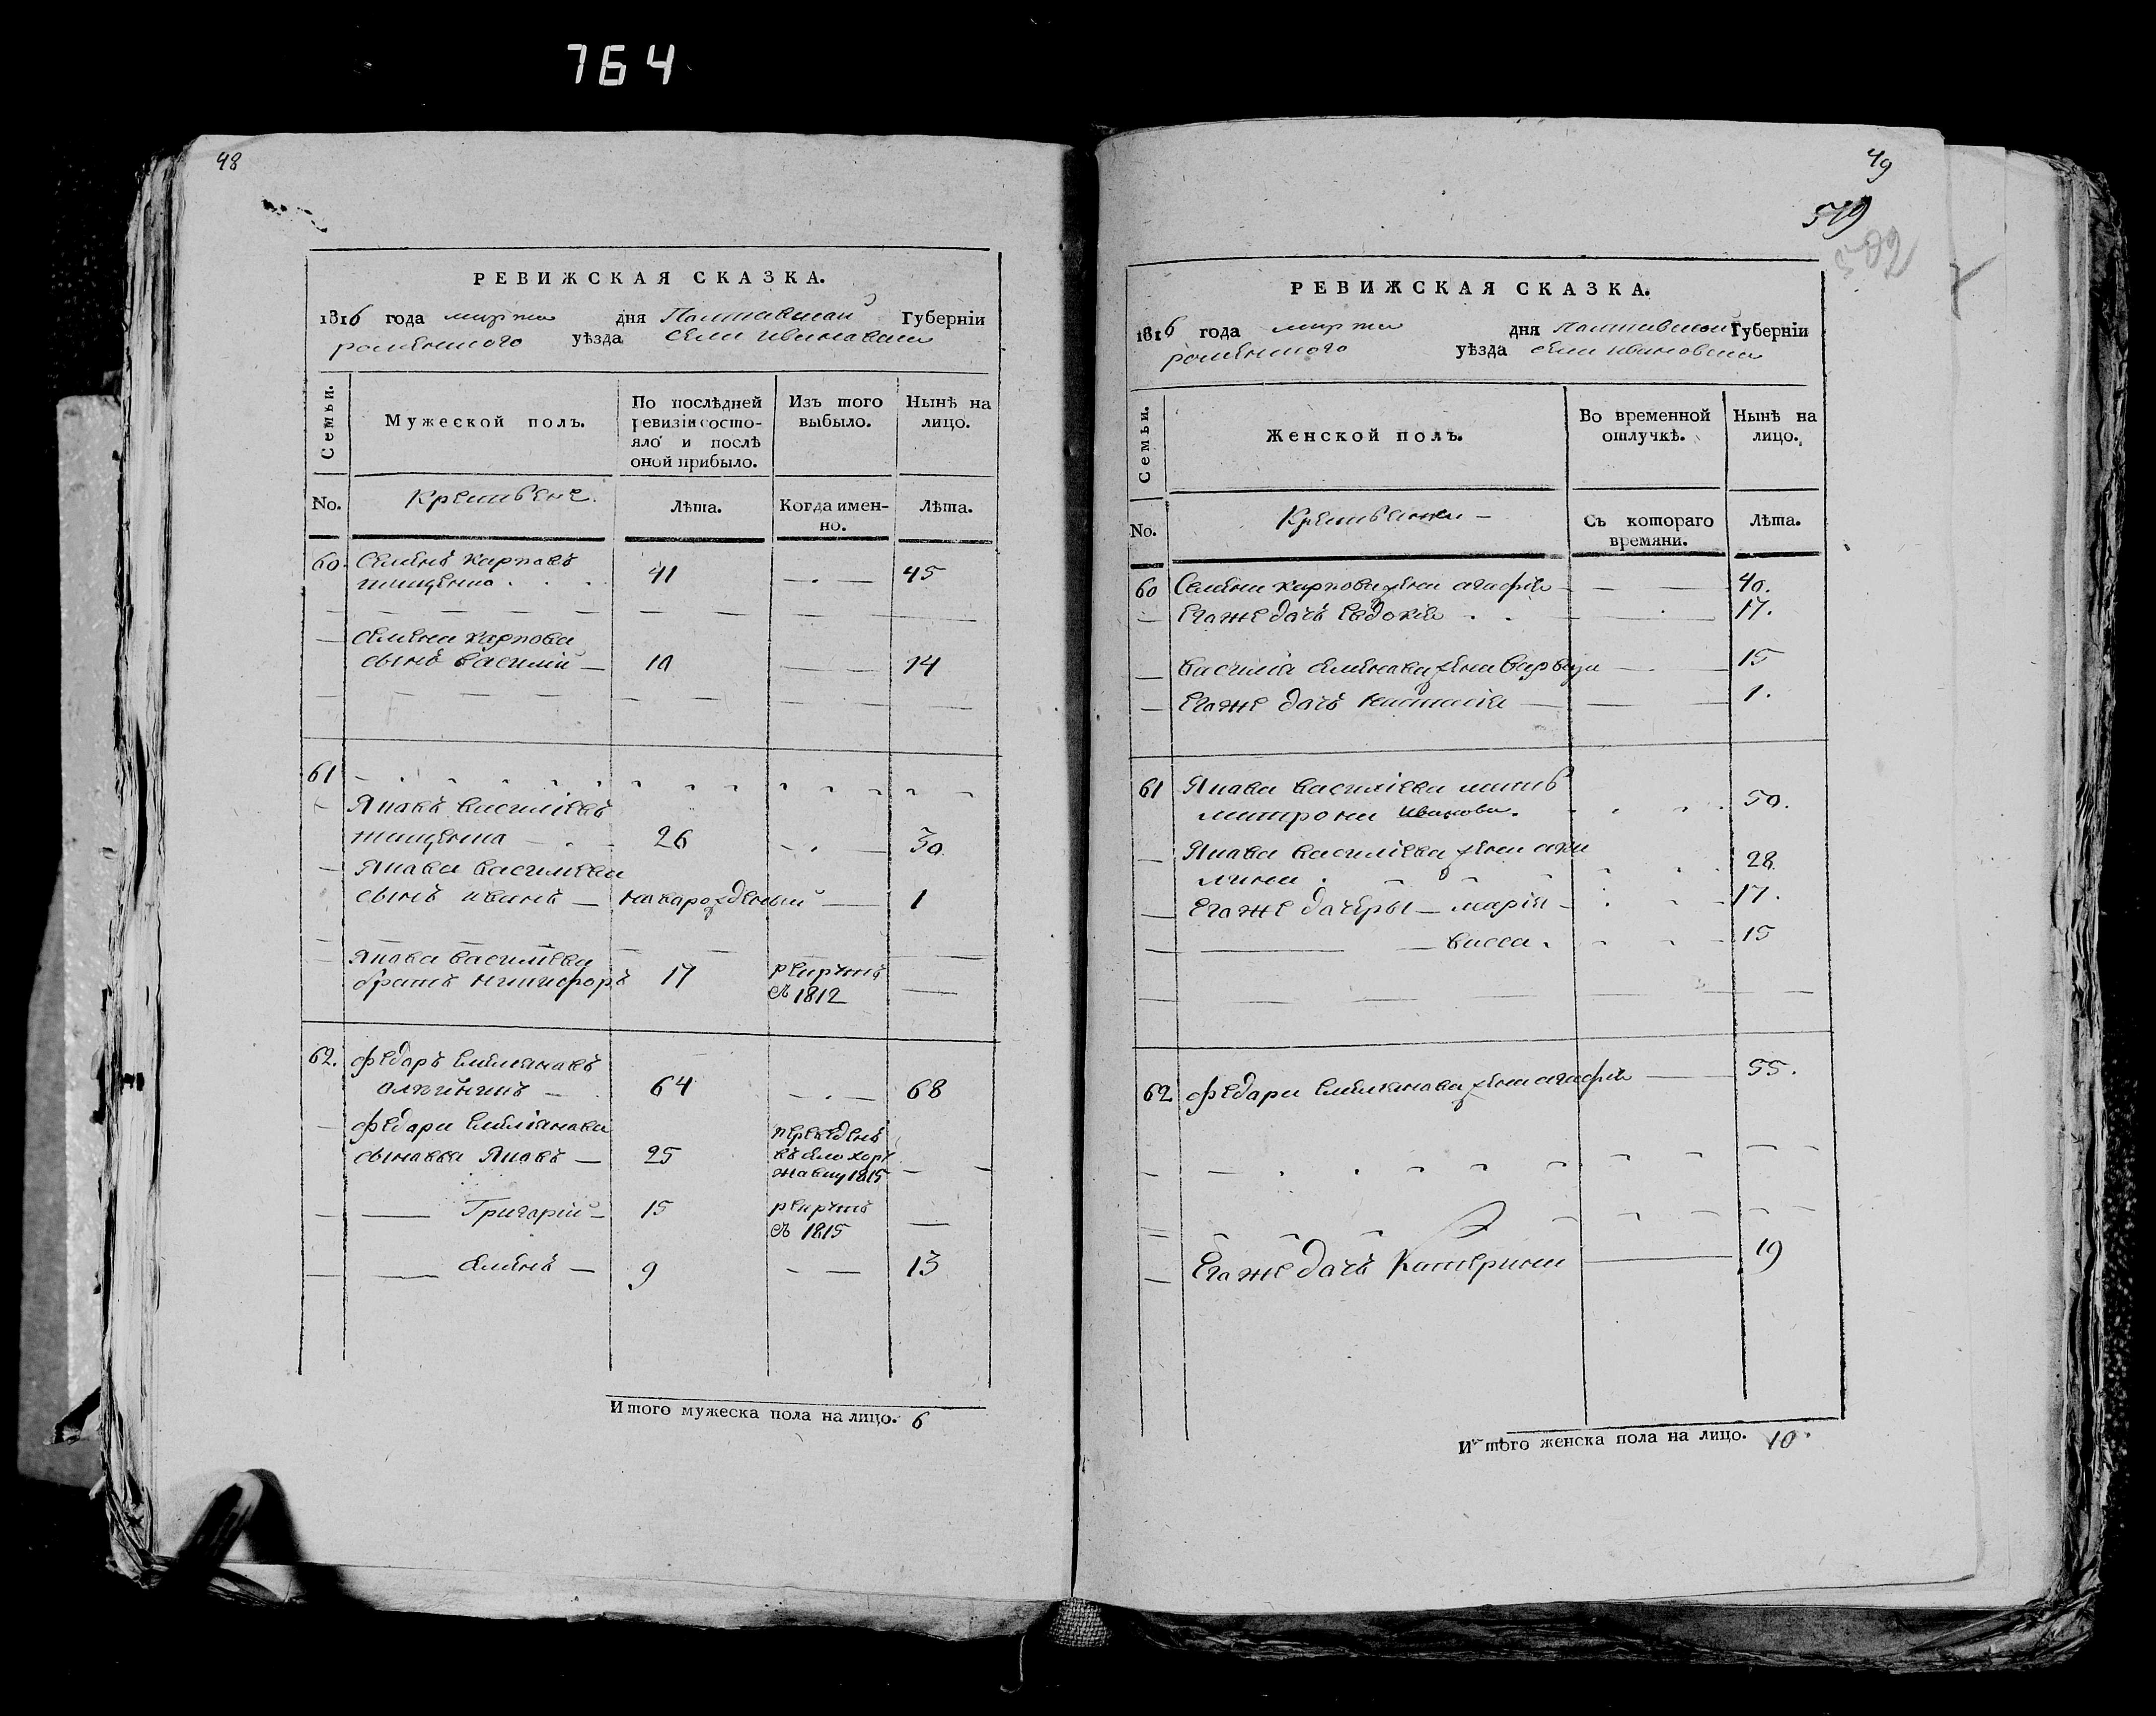 764
48
РЕВИЖСКАЯ СКАЗКА.
1816 года марта дня Полтавской Губерніи
роменского уѣзда села ивановки
Семьи.
Мужеской полъ.
По послѣдней ревизіи состо-
яло и послѣ
оной прибыло.
Изъ того
выбыло.
Нынѣ на
лицо.
No.
Крестьяне.
Лѣта.
Когда имен-
но.
Лѣта.
60. Семенъ карповъ
тищенко 41 45
семена карпова
сынъ василий 10 14
61
Яковъ васильевъ
тищенко 26 30
Якова васильева
сынъ иванъ новорожденный 1
Якова васильева
братъ никифоръ 17 рекрутъ
съ 1812
62. федоръ емельяновъ
64 68
федора емельянова
сыновья Яковъ 25 переведенъ
въ село
1815
Григорий 15 рекрутъ
съ 1815
семенъ 9 13
Итого мужеска пола на лицо. 6
49
519
502
РЕВИЖСКАЯ СКАЗКА.
1816 года марта дня полтавской Губерніи
роменского уѣзда села ивановки
Семьи.
Женской полъ.
Во временной
отлучкѣ.
Нынѣ на
лицо.
No.
Крестьянки
Съ котораго
времяни.
Лѣта.
60 Семена карпова жена агафия 40.
его же дочъ евдокия 17.
василия семенова жена варвара 15
его же дочъ настасия 1.
61 Якова васильева мать
матрона иванова. 50.
Якова васильева жена аку
лина 28
его же дочеры мария 17.
васса. 15
62 федора емельянова жена агафия 55.
Его же дочъ Катерина 19
Итого женска пола на лицо. 10.